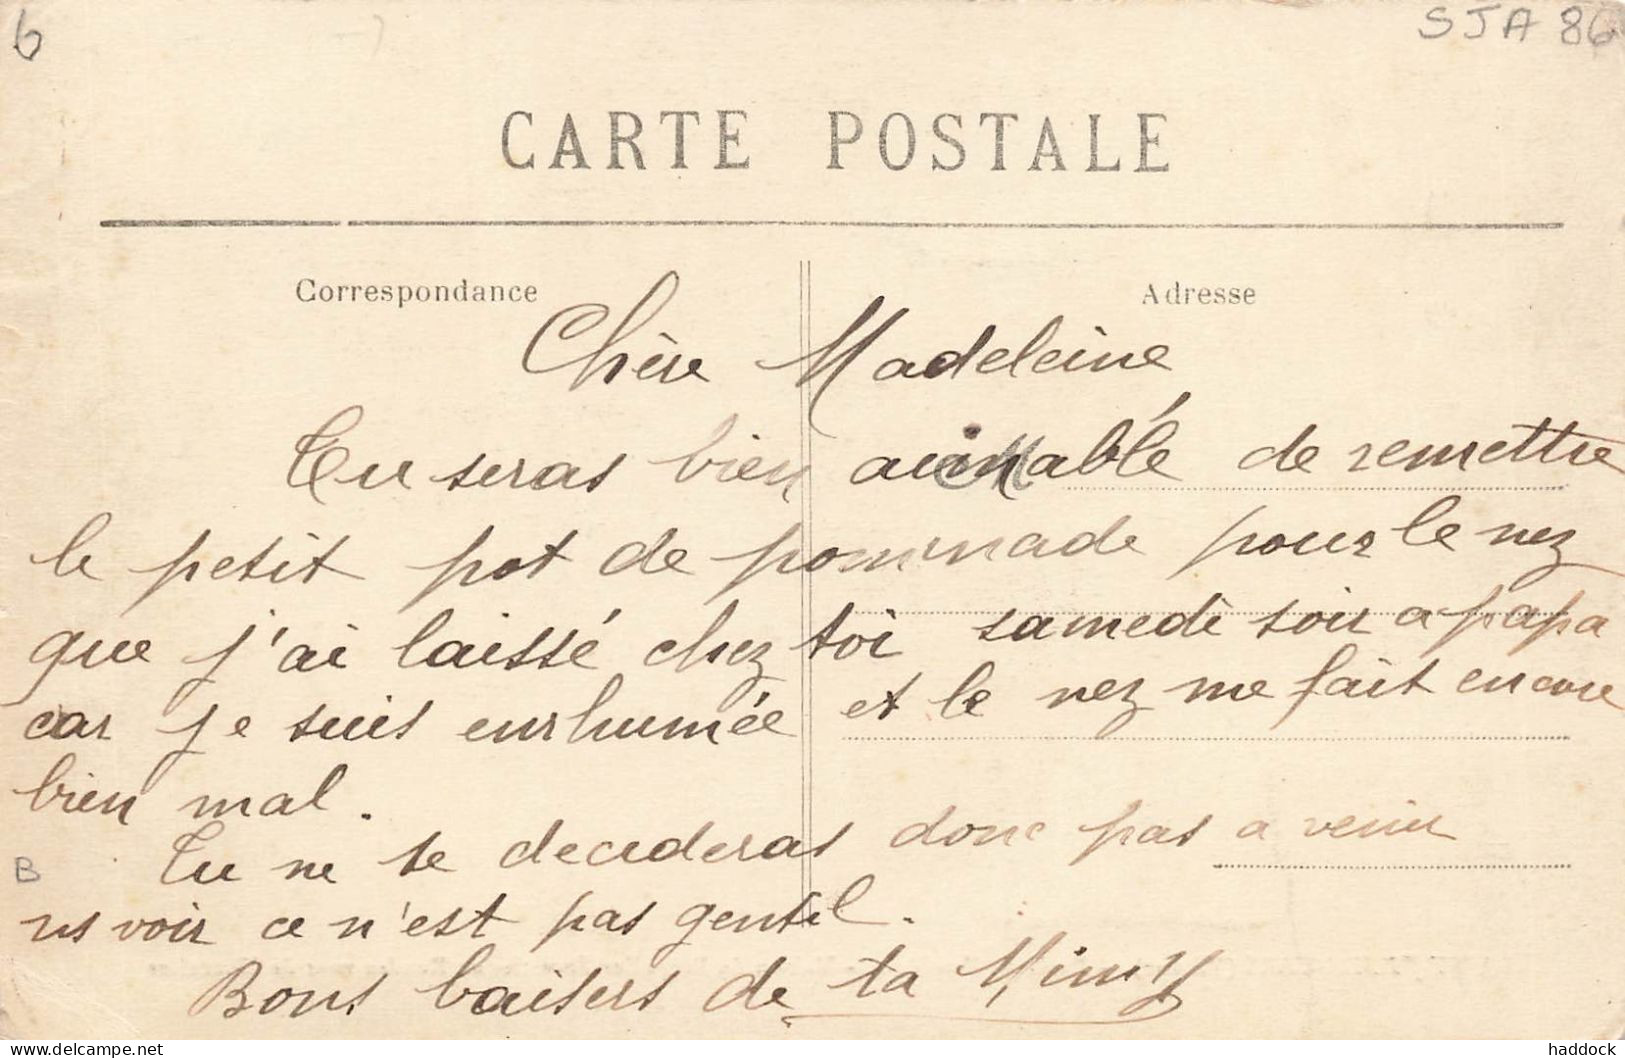 6
SJA 86
CARTE POSTALE
Correspondance
Adresse
Chère Madeleine
Tu seras bien aimablé de remettre
le petit pot de pommade pour le nez
que j'ai laissé chez toi samedi soir a papa
car je suis enrhumée et le nez me fait encore
bien mal.
B
Tu ne te decideras donc pas a venir
ns voir ce n'est pas gentil.
Bons baisers de ta Mimy
www.delcampe.net
haddock